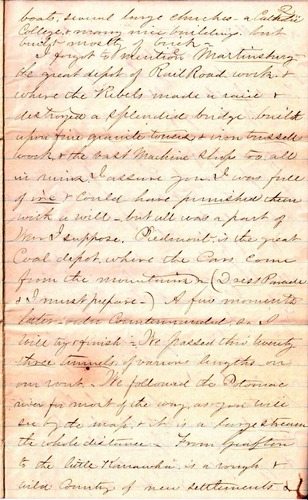 boats, several large churches - a Catholic
College, & many nice buildings, but
built mostly of brick -
I forgot to mention Martinsburg
the great depot of Rail Road work, &
where the Rebels made a raid &
destroyed a splendid bridge built
upon fine granite & iron trussell
work, & the vast Machine Shops too, all
in ruins. I assure you I was full
of ire & could have punished them
with a will - but all was a part of
War I suppose. Piedmont, is the great
Coal depot, where the Cars come
from the mountains - (Dress Parade
& I must prepare -) A few moments
later - order Countermanded, so I
will try & finish - We passed thro twenty
three tunnels, of various lengths on
our rout. - We followed the Potomac
river for most of the way, as you will
see by the map, & it is a large stream
the whole distance - From Grafton
to the little Kanawha, is a rough &
wild Country of new settlements &